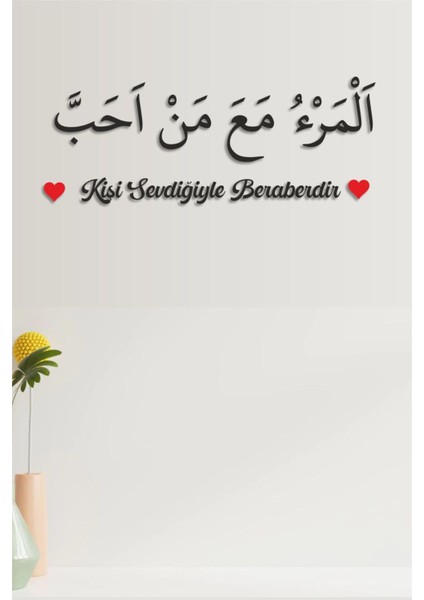 اَلْمَرْءُ مَعَ مَنْ اَحَبَّ
Kişi Sevdiğiyle Beraberdir